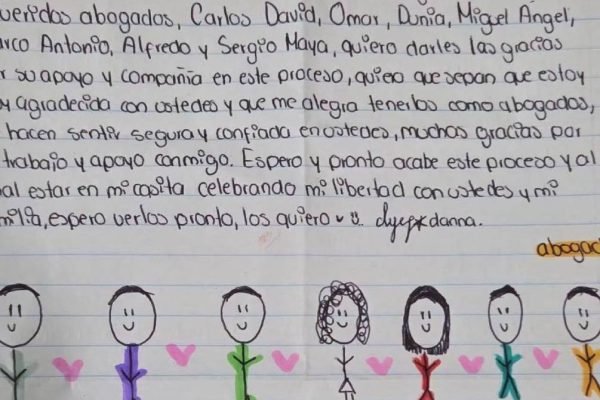 ueridos abogados, Carlos David, Omar, Dunia, Miguel Angel,
arco Antonio, Alfredo y Sergio Maya, quiero darles las gracias
r su apoyo y compañia en este proceso, quiero que sepan que estoy
y agradecida con ustedes y que me alegra tenerlos como abogados,
hacen sentir segura y confiada en ustedes, muchas gracias por
trabajo y apoyo conmigo. Espero y pronto acabe este proceso y al
al estar en mi casita celebrando mi libertad con ustedes y mi
milia, espero verlos pronto, los quiero danna.
abogad